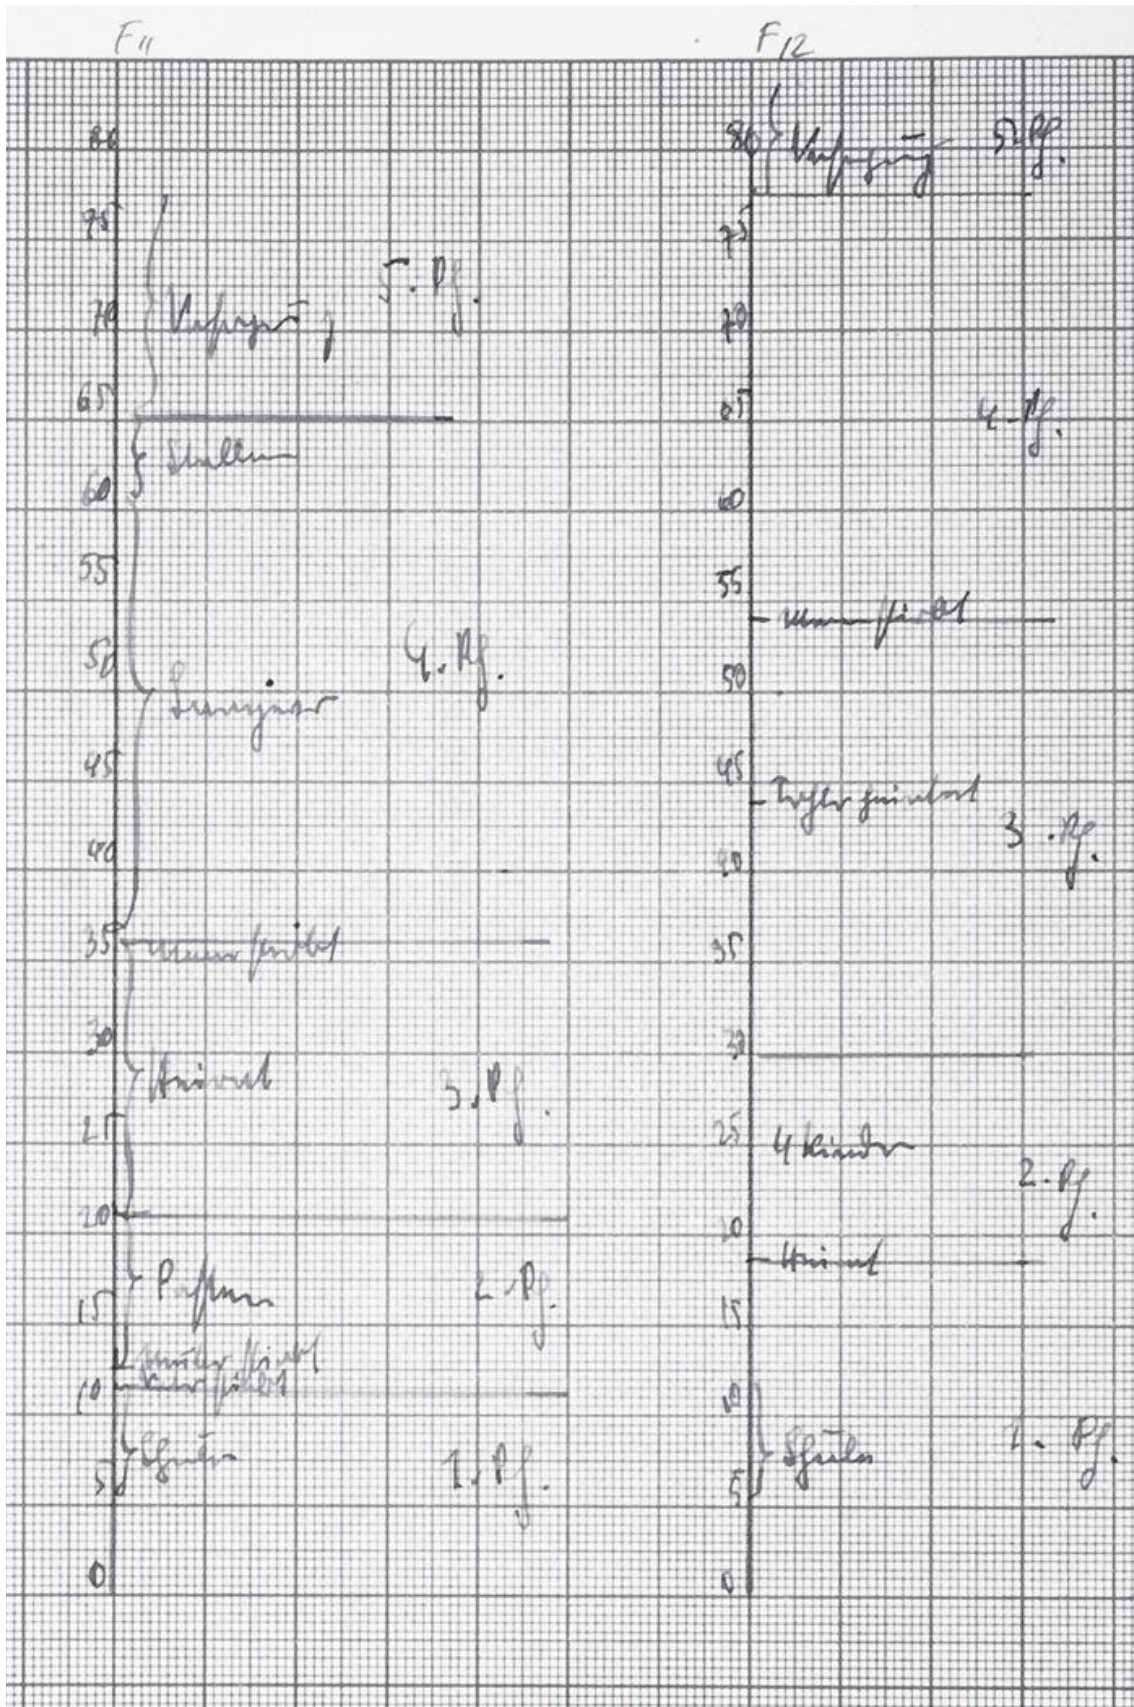 F11
80
75
5. Pf.
70
Versorgung
65
Stellen
60
55
50
4. Pf.
45
40
35
Mann stirbt
30
Heirat
3. Pf.
25
20
15
2. Pf.
Mutter stirbt
10
Vater stirbt
Schule
5
1. Pf.
0
F12
80
Versorgung
5. Pf.
75
70
65
4. Pf.
60
55
Mann stirbt
50
45
Tochter heiratet
3. Pf.
40
35
30
25
4 Kinder
2. Pf.
20
Heirat
15
10
Schule
1. Pf.
5
0